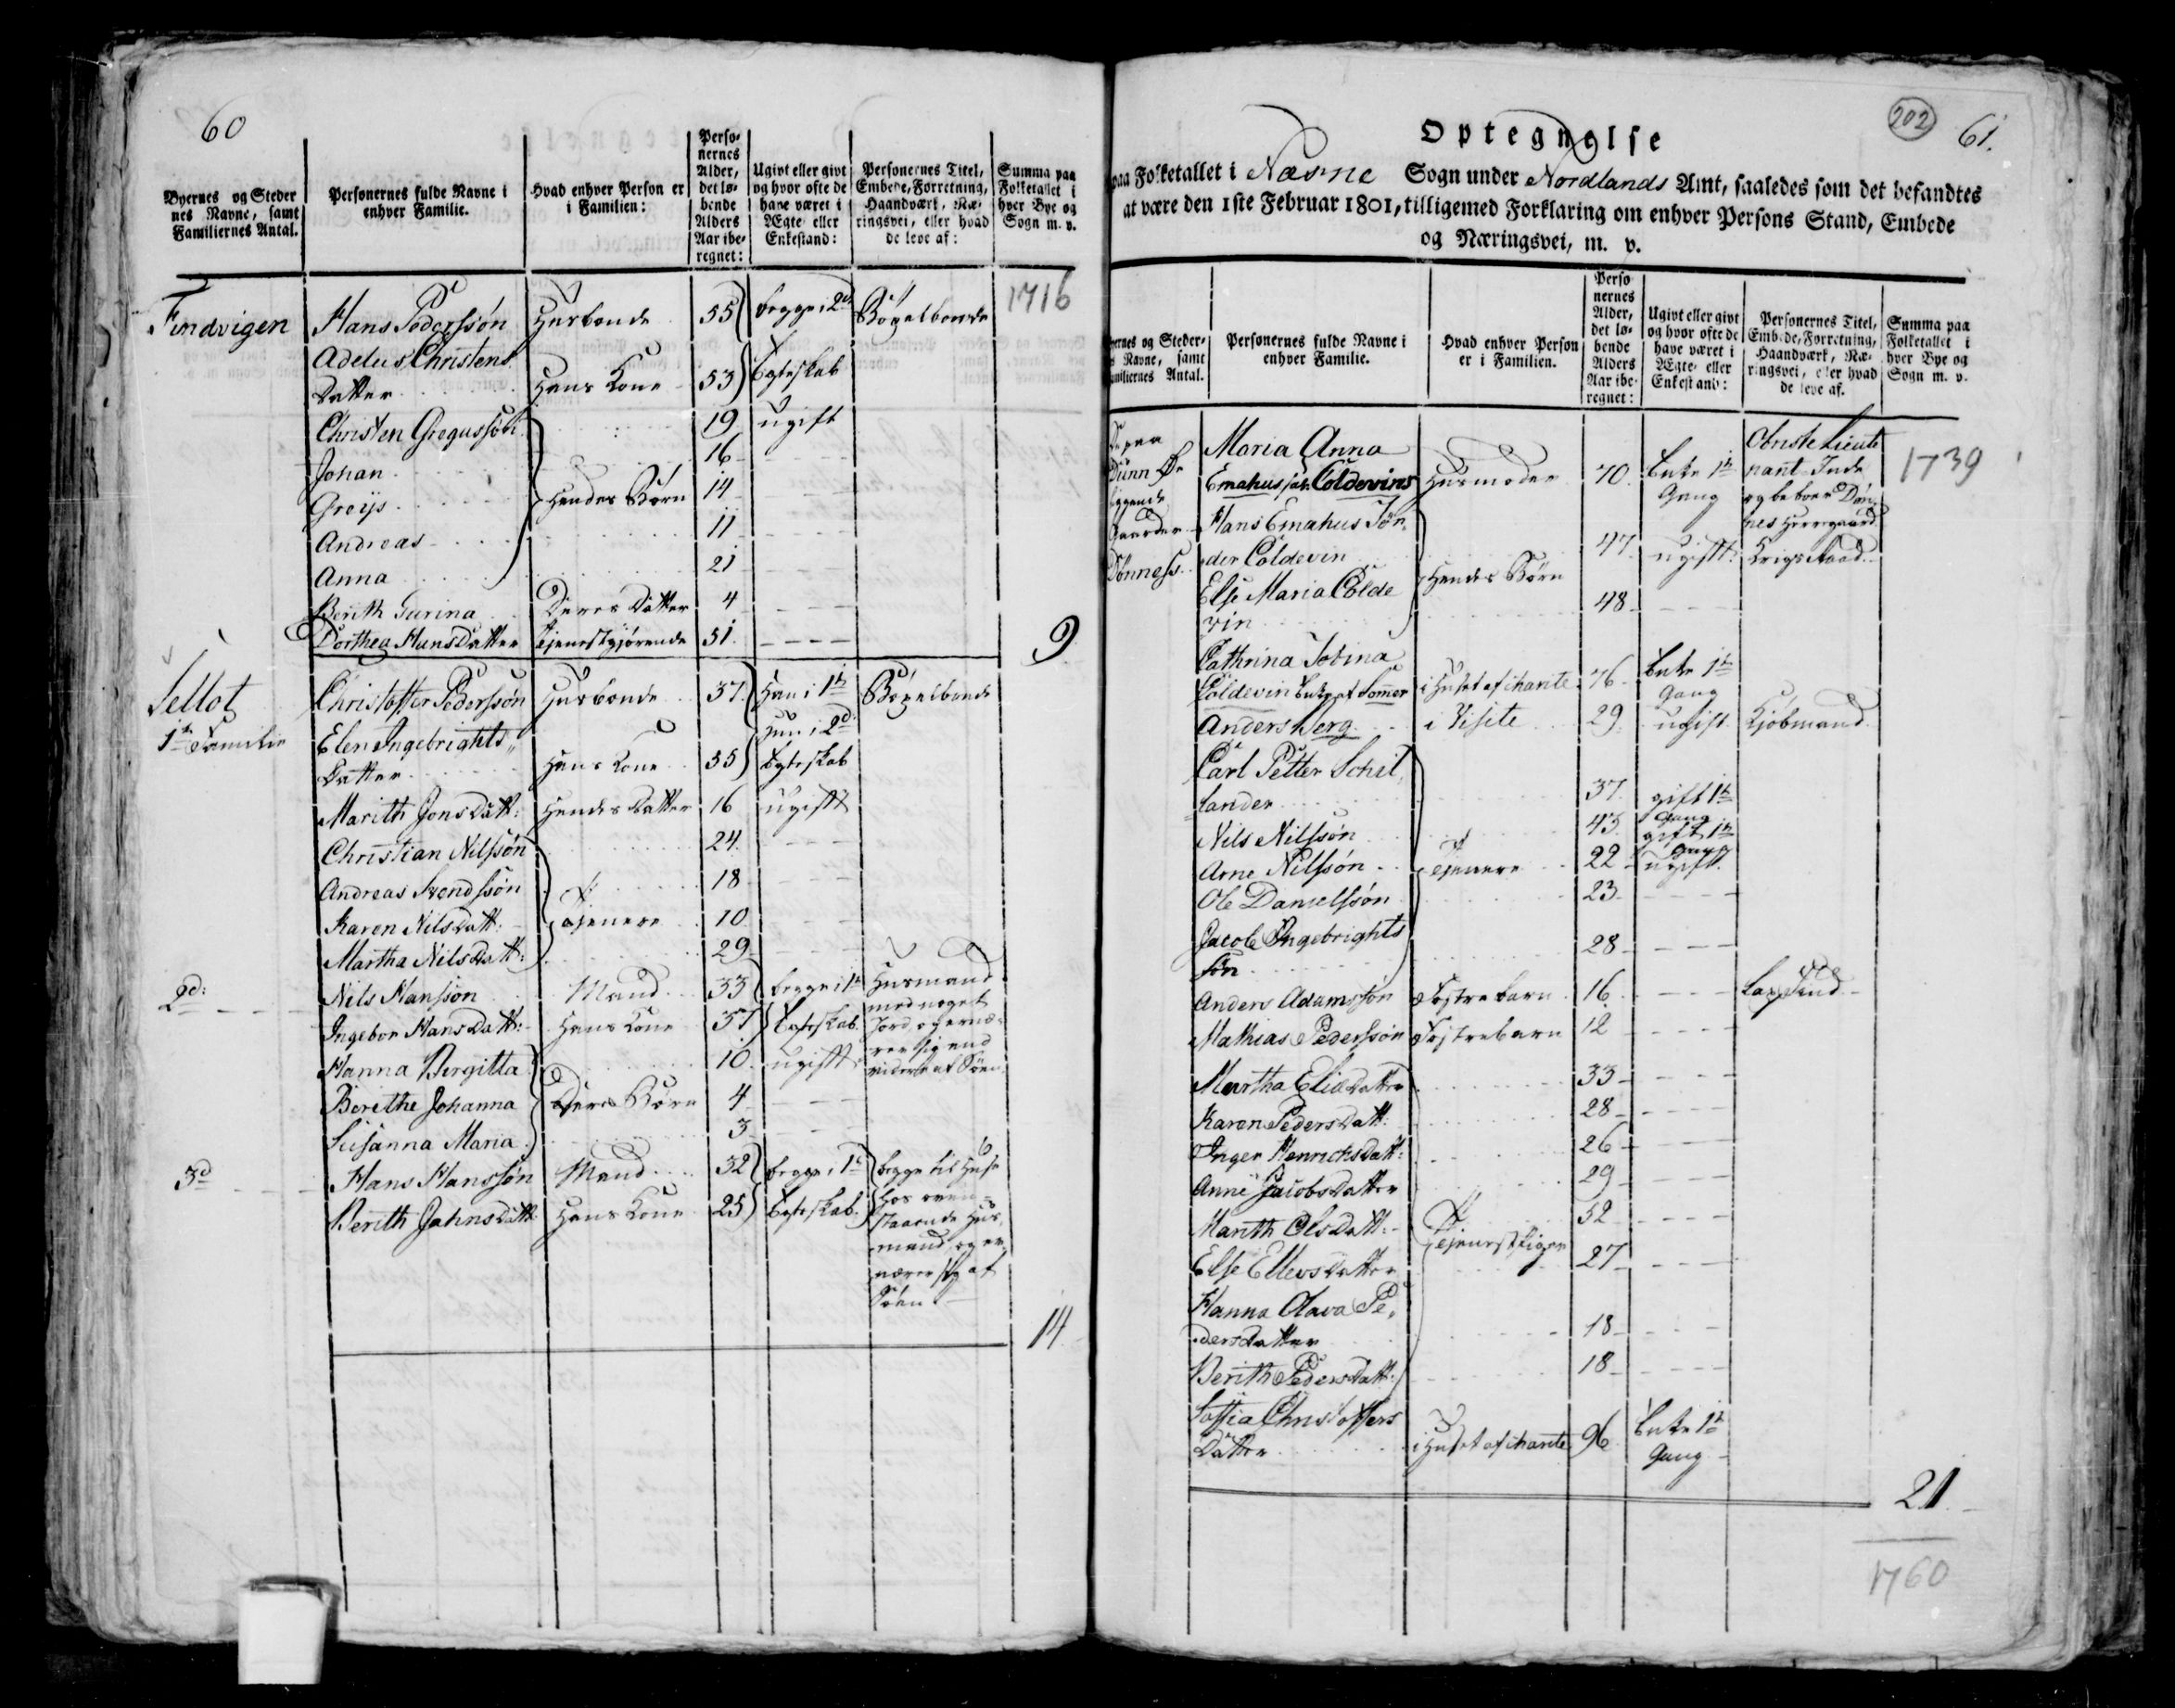 60
Byernes og Steder
nes Navne, samt
Familiernes Antal.
Personernes fulde Navne i
enhver Familie.
Hvad enhver Person er
i Familien:
Perso-
nernes
Alder,
det lø-
bende
Alders
Aar ibe-
regnet:
Ugivt eller givt
og hvor ofte de
have været i
Ægte- eller
Enkestand:
Personernes Titel,
Embede, Forretning,
Haandværk, Næ-
ringsvei, eller hvad
de leve af:
Summa paa
Folketallet i
hver Bye og
Sogn m. v.
1716
Findvigen Hans Pederssøn Husbonde 55 begge i 2d Böxelbonde
Adelus Christens
Datter Hans Kone 53 Egteskab
Christen Gregussön 19 ugift
Johan 16
Greÿs Hendes Börn 14
Andreas 11
Anna 21
Berith Turina Deres Datter 4
Dorthea HansDatter tjenestgjørende 51
9
Sellot Christoffer Pederssøn Husbonde 37 Han i 1te Böxelbonde
1te Familie Elen Ingebrights hun i 2d
Datter Hans Kone 55 Egteskab
Marith JonsDatt: Hendes Datter 16 ugift
Christian Nilssøn 24
Andreas Svendssøn 18
Karen NilsDatt: Tjenere 10
Martha NilsDatt: 29
2d: Nils Hansson Mand 33 begge i 1te Husmand
med noget
Ingebor HansDatt: Hans Kone 37 Egteskab. Jord og ernæ-
rer sig end
Hanna Bergitta 10 ugift videre af Söen
Berithe Johanna Deres Börn 4
Susanna Maria 3
3d Hans Hanssøn Mand 32 begge i 1te begge til Huse
Berith JahnsDatt Hans Kone 25 Egteskab. hos oven-
staaende Hus-
mand og er-
nærer sig af
Söen
14
202
61.
Optegnelse
paa Folketallet i Næsne Sogn under Nordlands Amt, saaledes som det befandtes
at være den 1ste Februar 1801, tilligemed Forklaring om enhver Persons Stand, Embede
og Næringsvei, m. v.
Byernes og Steder-
s Navne, samt
Familiernes Antal.
Personernes fulde Navne i
enhver Familie.
Hvad enhver Person
er i Familien.
Perso
nernes
Alder,
det lø-
bende
Alders
Aar ibe-
regnet:
Ugivt eller givt
og hvor ofte de
have været i
Ægte- eller
Enkestand:
Personernes Titel,
Embede, Forretning,
Haandværk, Næ-
ringsvei, eller hvad
de leve af.
Summa paa
Folketallet i
hver Bye og
Sogn m. v.
De paa Maria Anna Obriste Lieute
Dünn Öe Emahus Coldevins Husmoder 70 Enke 1te nant Inde 1739
liggende Gang og beboer Dön-
Gaarder Hans Emahus Søn- nes Herregaard
Dönness der Coldevin 47 ugift Krigs Raad
Else Maria Colde Hendes Börn
vin 48
Cathrina Sovina
Coldevin Enke af Sommer i Huset af charite 76 Enke 1te
Gang
Anders Berg i Visite 29 ugift Kjöbmand
Carl Petter Schil
lander 37 gift 1te
Gang
Nils Nilssøn 45 gift 1te
Gang
Arne Nilssøn Tjenere 22 ugift
Ole Danielssøn 23
Jacob Ingebrights
søn 28
Anders Adamssøn Fostrebarn 16 Lap Find
Mathias Pederssøn Fostrebarn 12
Martha EliaDatter 33
Karen PedersDatt: 28
Inger HenrichsDatt: 26
Anne JacobsDatter 29
Marith OlsDatt: 52
Else EllevsDatter Tjenestpiger 27
Hanna Olava Pe-
dersDatter 18
Berith PedersDatt: 18
Soffia Christoffers
Datter i Huset af charite 96 Enke 1te
Gang
21
1760